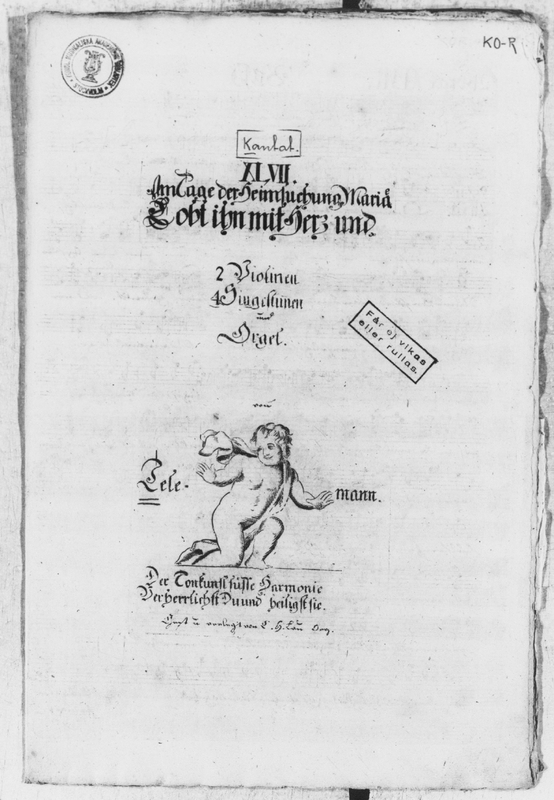 KO-R
KUNGL. MUSIKALISKA AKADEMIENS BIBLIOTEK
Kantat.
XLVII.
Am Tage der Heimsuchung Mariä
Lobt ihn mit Herz und
2 Violinen
4 Singestimen
und
Orgel.
Får ej vikas
eller rullas.
von
Tele-
mann.
Der Tonkunst süsse Harmonie
Verherrlichst Du und heiligst sie.
C. H. Lau Org.